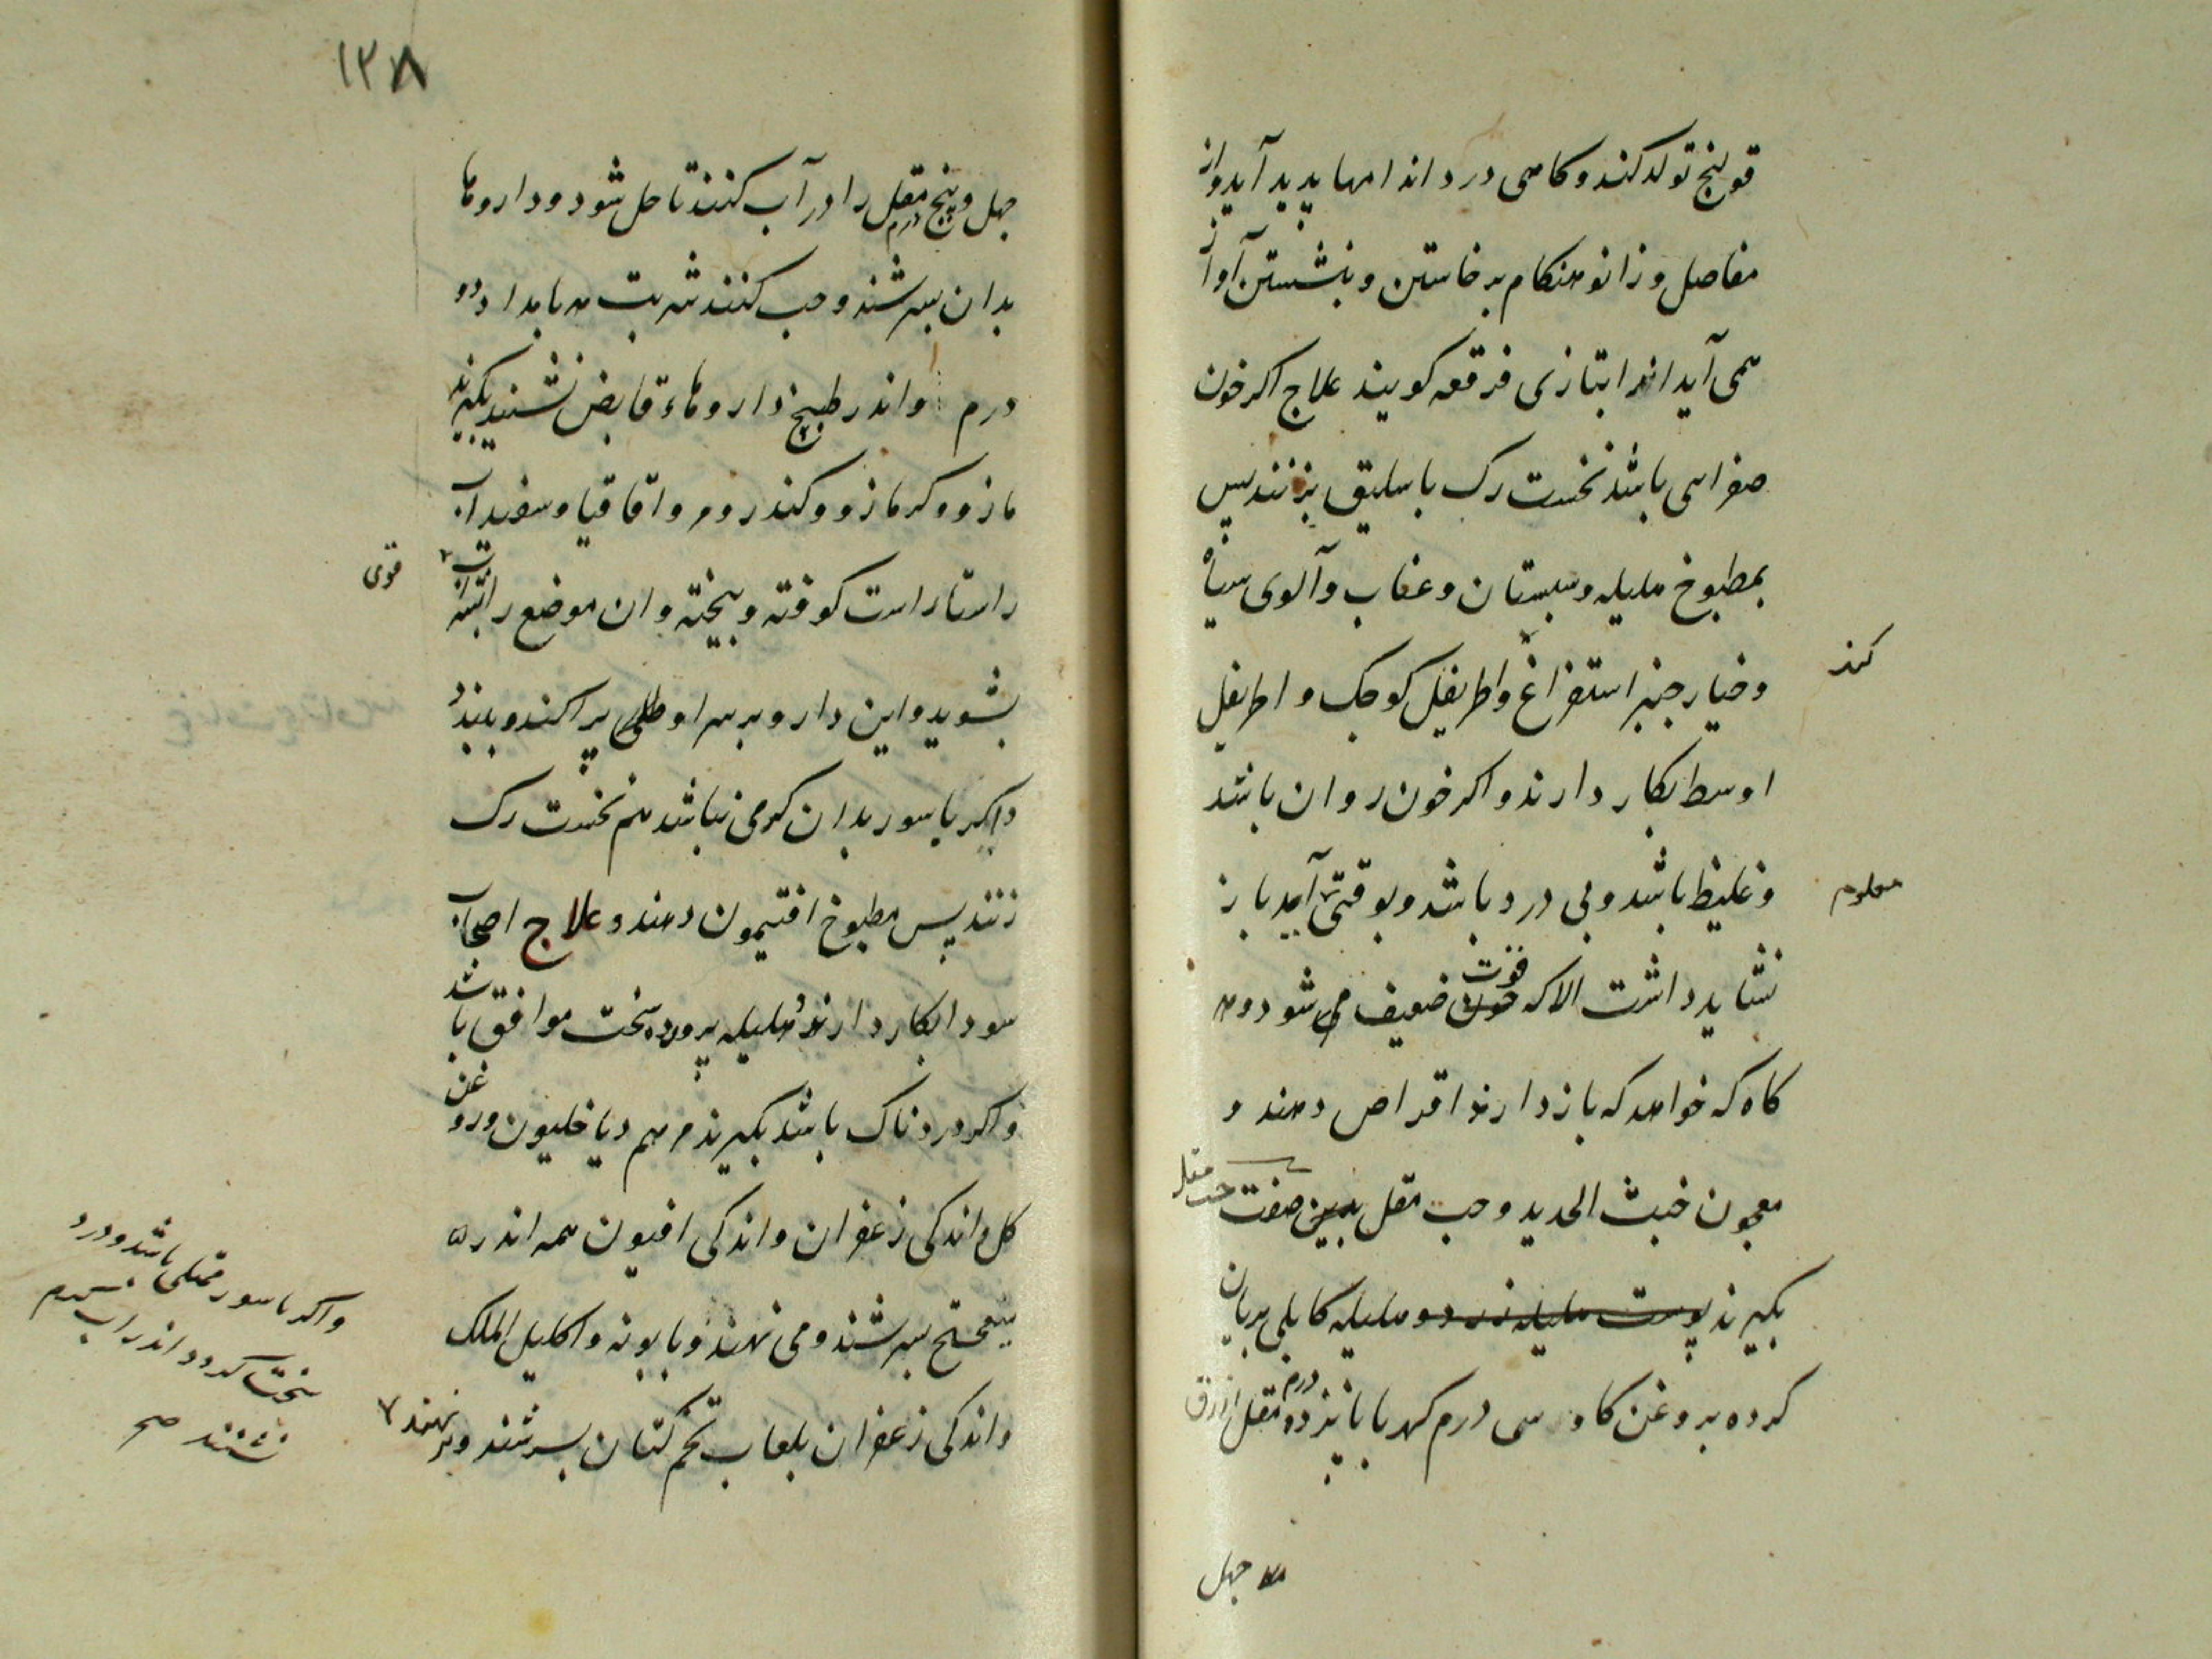 قولنج تولد کند و کاهی درد اندامها پدید آید و از
مفاصل و زانو هنکام برخاستن و بنشستن آواز
همی آید انرا بتازی فرقعه کویند علاج اکر خون
صفرایی باشد نخست رک باسلیق بزنند پس
بمطبوخ هلیله و سبستان و عناب و آلوی سیاه
و خیارجنبر استفراغ و اطریفل کوجک و اطریفل
کند
اوسط بکار دارند و اکر خون روان باشد
و غلیظ باشد و بی درد باشد و بوقتی آید باز
معلوم
نشاید داشت الا که قوت ضعیف می شود و هر
کاه که خواهد که باز دارند اقراص دهند و
معجون خبث الحدید و حب مقل بدین صفت حب مقل
بکیرند پوست هلیله زرد و هلیله کابلی بریان
کرده بروغن کاو سی درم کهربا پانزده درم مقل ازرق
جهل
۱۳۸
جهل و پنج درم مقل را در آب کنند تا حل شود و داروها
بدان بسرشند و حب کنند شربت هر بامداد دو
درم و اندر طبیخ داروهاء قابض نشیند بکیرند
مازو و کزمازو و کندر و مر و اقاقیا و سفیداب
راستا راست کوفته و بیخته وان موضع را بشراب
قوی
بشوید و این دارو بر سر او طلی پراکند و ببندد
و اکر باسور بدان کرمی نباشد هم نخست رک
زنند پس مطبوخ افتیمون دهند و علاج اصحاب
سودا بکار دارند و هلیله پرورده سخت موافق باشد
و اکر دردناک باشد بکیرند مرهم دیاخلیون و روغن
کل و اندکی زعفران و اندکی افیون همه اندر
میبفختج بسرشند و می نهند و بابونه و اکلیل الملک
و اندکی زعفران بلعاب تخم کتان بسرشند و بر نهند
و اکر باسور ممتلی باشد و درد
سخت کردد اندر اب نیم کرم
نشنند صح